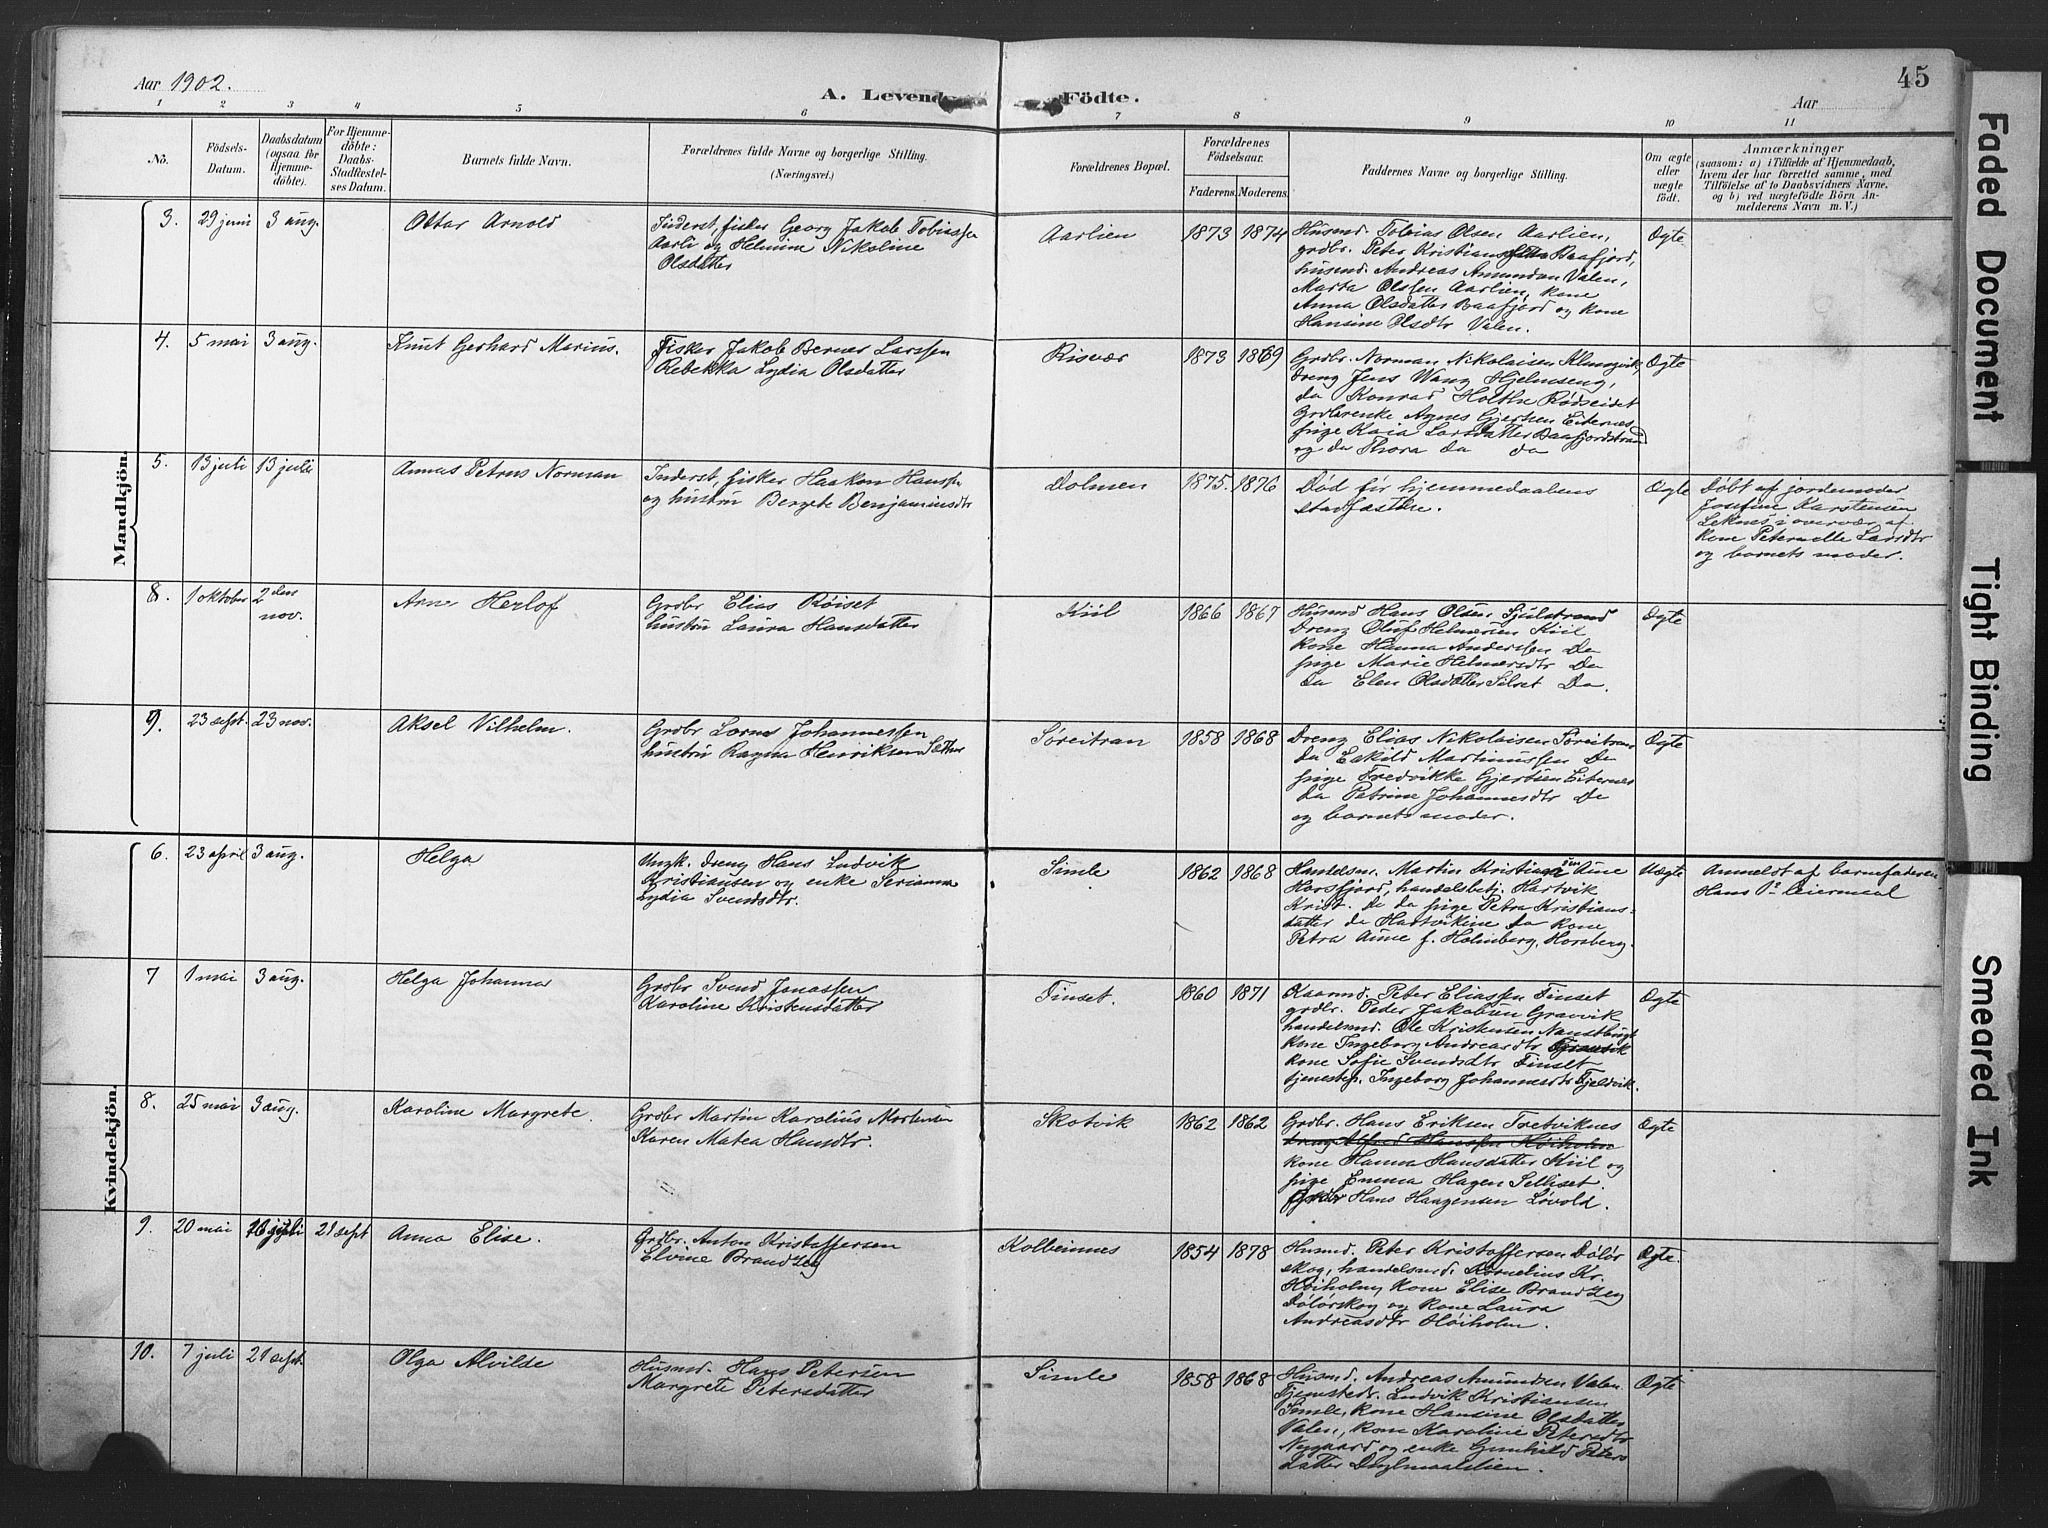 Aar 1902.
A. Levende Födte.
Aar
45
1 2 3 4 5 6 7 8 9 10 11
No.
Födsels-
Datum.
Daabsdatum
(ogsaa for
Hjemme-
döbte).
For Hjemme-
döbte:
Daabs-
Stadfæstel-
ses Datum.
Barnets fulde Navn.
Forældrenes fulde Navne og borgerlige Stilling.
(Næringsvei.)
Forældrenes Bopæl.
Forældrenes
Födselsaar.
Faderens.
Moderens.
Faddernes Navne og borgerlige Stilling.
Om ægte
eller
uægte
födt.
Anmærkninger
(saasom: a) i Tilfælde af Hjemmedaab,
hvem der har forrettet samme, med
Tilföielse af to Daabsvidners Navne,
og b) ved uægtefödte Börn An-
melderens Navn m. V.)
Mandkjön.
3. 29 juni 3 aug. Ottar Arnold
Inderst, fisker Georg Jakob Tobiassen
Aarli og Helmine Nikoline
Olsdatter
Aarlien 1873 1874
Husmd. Tobias Olsen Aarlien,
grdbr. Peter Kristiansen Baafjord,
husmd. Andreas Amundsen Valen,
Marta Olssen Aarlien, kone
Anna Olsdatter Baafjord og kone
Hansine Olsdtr Valen.
Ægte
4. 5 mai 3 aug. Knut Gerhard Marius.
Fisker Jakob Berner Larssen
Rebekka Lydia Olsdatter
Risvær 1873 1869
Grdbr. Norman Nikolaisen
dreng Jens Wang Hjelmseng,
do Konrad Holthe Rødseidet
Grdbrenke Agnes Gjertsen Eiternes
pige Kaia Larsdatter Baafjordstrand
og do Thora do do
Ægte
5. 13 juli 13 juli Annus Petrus Norman
Inderst, fisker Haakon Hanssen
og hustru Bergete Benjaminsdtr
Dolmen 1875. 1876
Død før hjemmedaabens
stadfæstelse.
Ægte
Døbt af jordemoder
Josefine Karstensen
Leknes i overvær af
kone Peternelle Larsdtr
og barnets moder.
8. 1 oktober 2den nov. Arne Herlof
Grdbr Elias Røiset
hustru Laura Hansdatter
Kiil 1866 1867
Husmd Hans Olsen Sjulstrand
Dreng Oluf Helmersen Kiil
kone Hanna Anderssen Do
pige Marie Helmersdtr Do
Do Elen Olsdatter Silset Do.
Ægte
9. 23 sept. 23 nov. Aksel Vilhelm.
Grdbr Lorns Johannessen
hustru Ragna Henriksen Sæther
Søreitran 1858 1868
Dreng Elias Nikolaisen Søreitran
do Eskild Martinussen Do
pige Fredrikke Gjertsen Eiternes
do Petrine Johannesdtr Do
og barnets moder.
Ægte
Kvindekjön.
6. 23 april 3 aug. Helga
Ungk. dreng Hans Ludvik
Kristiansen og enke Serianna
Lydia Svendsdtr.
Simle 1862 1868
Handelsm. Martin Kristiansen Aune
Horsfjord, handelsbetj. Hartvik
Krist. do do pige Petra Kristians-
datter do Hartvikine do kone
Petra Aune f. Holmberg, Horsberg.
Uægte
Anmeldt af barnefaderen
Hans 1ste leiermaal
7 1 mai 3 aug. Helga Johanna
Grdbr Svend Jonassen
Karoline Kristensdatter
Finset. 1860 1871
Kaarmd. Peter Eliassen Finset
grdbr. Peder Jakobsen Gravvik
handelsmd. Ole Kristensen
kone Ingeborg Andreasdtr Gravvik
kone Sofie Svendsdtr Finset
tjenestep. Ingeborg Johannesdtr Fjeldvik.
Ægte
8. 25 mai 3 aug. Karoline Margrete.
Grdbr Martin Karolius Mortensen
Karen Matea Hansdtr.
Skotvik 1862 1862
Grdbr. Hans Eriksen Tretviknes
dreng Alfred Hanssen Høiholm
kone Hanna Hansdatter Kiil og
pige Emma Hagen Selliset.
Grdbr Hans Haagensen Løvold.
Ægte
9. 20 mai juli 21 sept Anna Elise.
Grdbr. Anton Kristoffersen
Elvine Brandzeg
Kolbeinnes 1854 1878
Husmd. Peter Kristoffersen Dølør
skog, handelsmd. Kornelius Kr.
Høiholm, kone Elise Brandzeg
Dølørskog og kone Laura
Andreasdtr Høiholm.
Ægte.
10. 7 juli 21 sept. Olga Alvilde
Husmd. Hans Petersen
Margrete Petersdatter
Simle 1858 1868
Husmd. Andreas Amundsen Valen
Tjenestedr. Ludvik Kristiansen
Simle, kone Hansine Olsdatter
Valen, kone Karoline Petersdtr
Nygaard og enke Gunhild Peters
datter
Ægte
Faded Document
Tight Binding
Smeared Ink